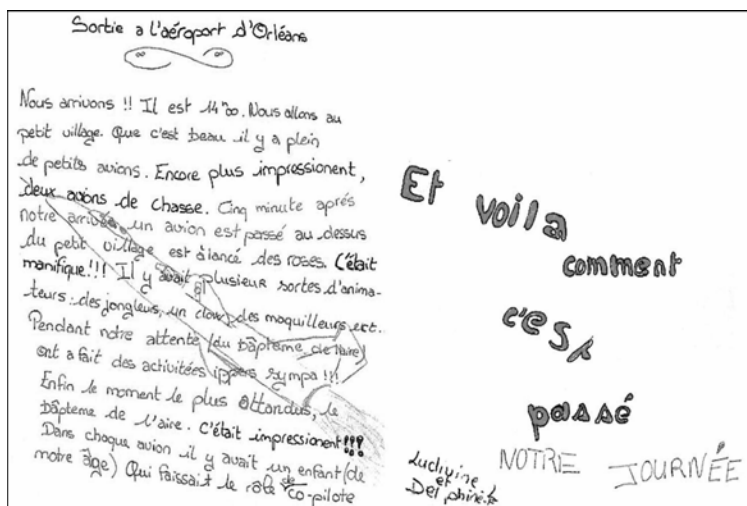 Sortie a l'aéroport d'Orléans
Nous arrivons !! Il est 14h00. Nous allons au
petit village. Que c'est beau il y a plein
de petits avions. Encore plus impressionent,
deux avions de chasse. Cinq minute aprés
notre arrivée un avion est passé au dessus
du petit village est à lancé des roses. C'était
manifique!!! Il y avait plusieur sortes d'anima-
teurs: des jongleurs, un clown, des maquilleurs ect.
Pendant notre attente (du bâpteme de l'aire)
ont a fait des activitées ippers sympa!!!
Enfin le moment le plus attandus, le
bâpteme de l'aire. C'était impressionent!!!
Dans chaque avion il y avait un enfant (de
notre âge) Qui faissait le rôle de co-pilote
Et voila
comment
c'est
passé
NOTRE JOURNÉE
Ludivine
et
Delphine